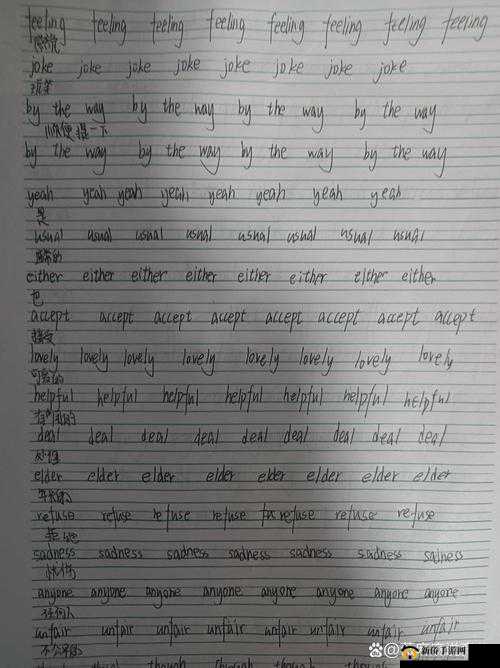 feeling feeling feeling feeling feeling feeling feeling feeling
感觉
joke joke joke joke joke joke joke joke
玩笑
by the way by the way by the way by the way
顺便提一下
by the way by the way by the way by the way
yeah yeah yeah yeah yeah yeah yeah yeah
是
usual usual usual usual usual usual usual usual
通常的
either either either either either either either either
也
accept accept accept accept accept accept accept accept
接受
lovely lovely lovely lovely lovely lovely lovely lovely
可爱的
helpful helpful helpful helpful helpful helpful helpful
有帮助的
deal deal deal deal deal deal deal deal deal
处理
elder elder elder elder elder elder elder elder
年长的
refuse refuse refuse refuse refuse refuse refuse
拒绝
sadness sadness sadness sadness sadness sadness salness
忧伤
anyone anyone anyone anyone anyone anyone anyone anyone
任何人
unfair unfair unfair unfair unfair unfair unfair unfair
不公平的
though though though though though
新侨手游网